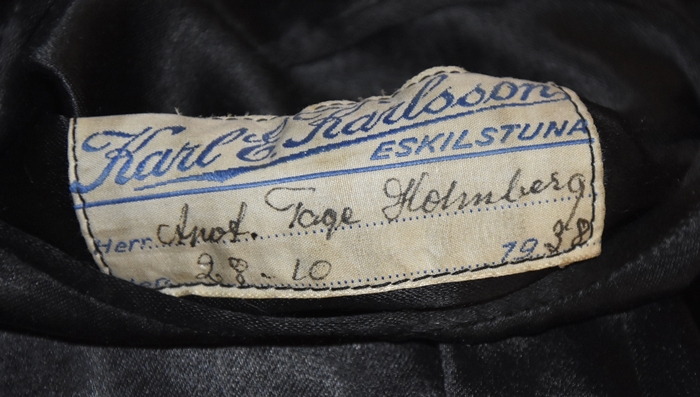 Karl E. Karlsson
ESKILSTUNA
Herr Apot. Tage Holmberg
28-10 1938